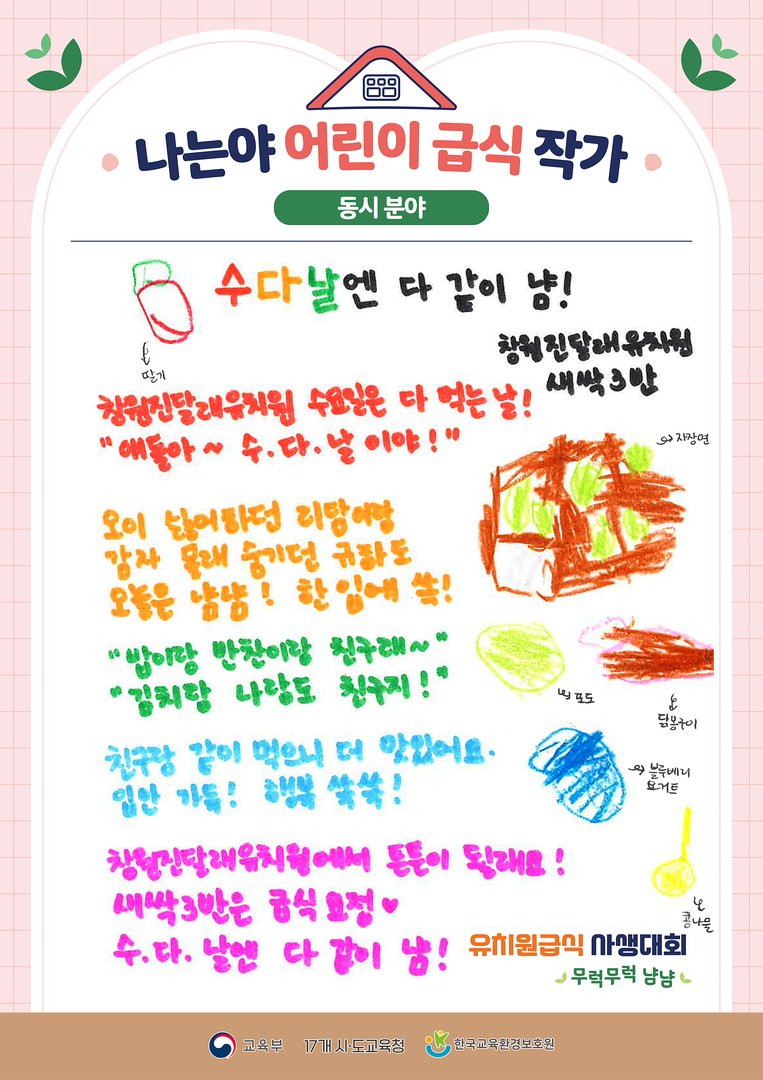 나는야 어린이 급식 작가
동시 분야
수다날엔 다 같이 냠!
창원진달래유치원
새싹3반
딸기
창원진달래유치원 수요일은 다 먹는 날!
"얘들아~ 수.다.날 이야!"
자장면
오이 싫어하던 리망이랑
감자 몰래 숨기던 규하도
오늘은 냠냠! 한 입에 쏙!
"밥이랑 반찬이랑 친구래~"
"김치랑 나랑도 친구지!"
포도
닭봉구이
친구랑 같이 먹으니 더 맛있어요.
입안 가득! 행복 쑥쑥!
블루베리
요거트
창원진달래유치원에서 튼튼이 될래요!
새싹3반은 급식 요정♥
수.다.날엔 다 같이 냠!
콩나물
유치원급식 사생대회
무럭무럭 냠냠
교육부 17개 시·도교육청 한국교육환경보호원